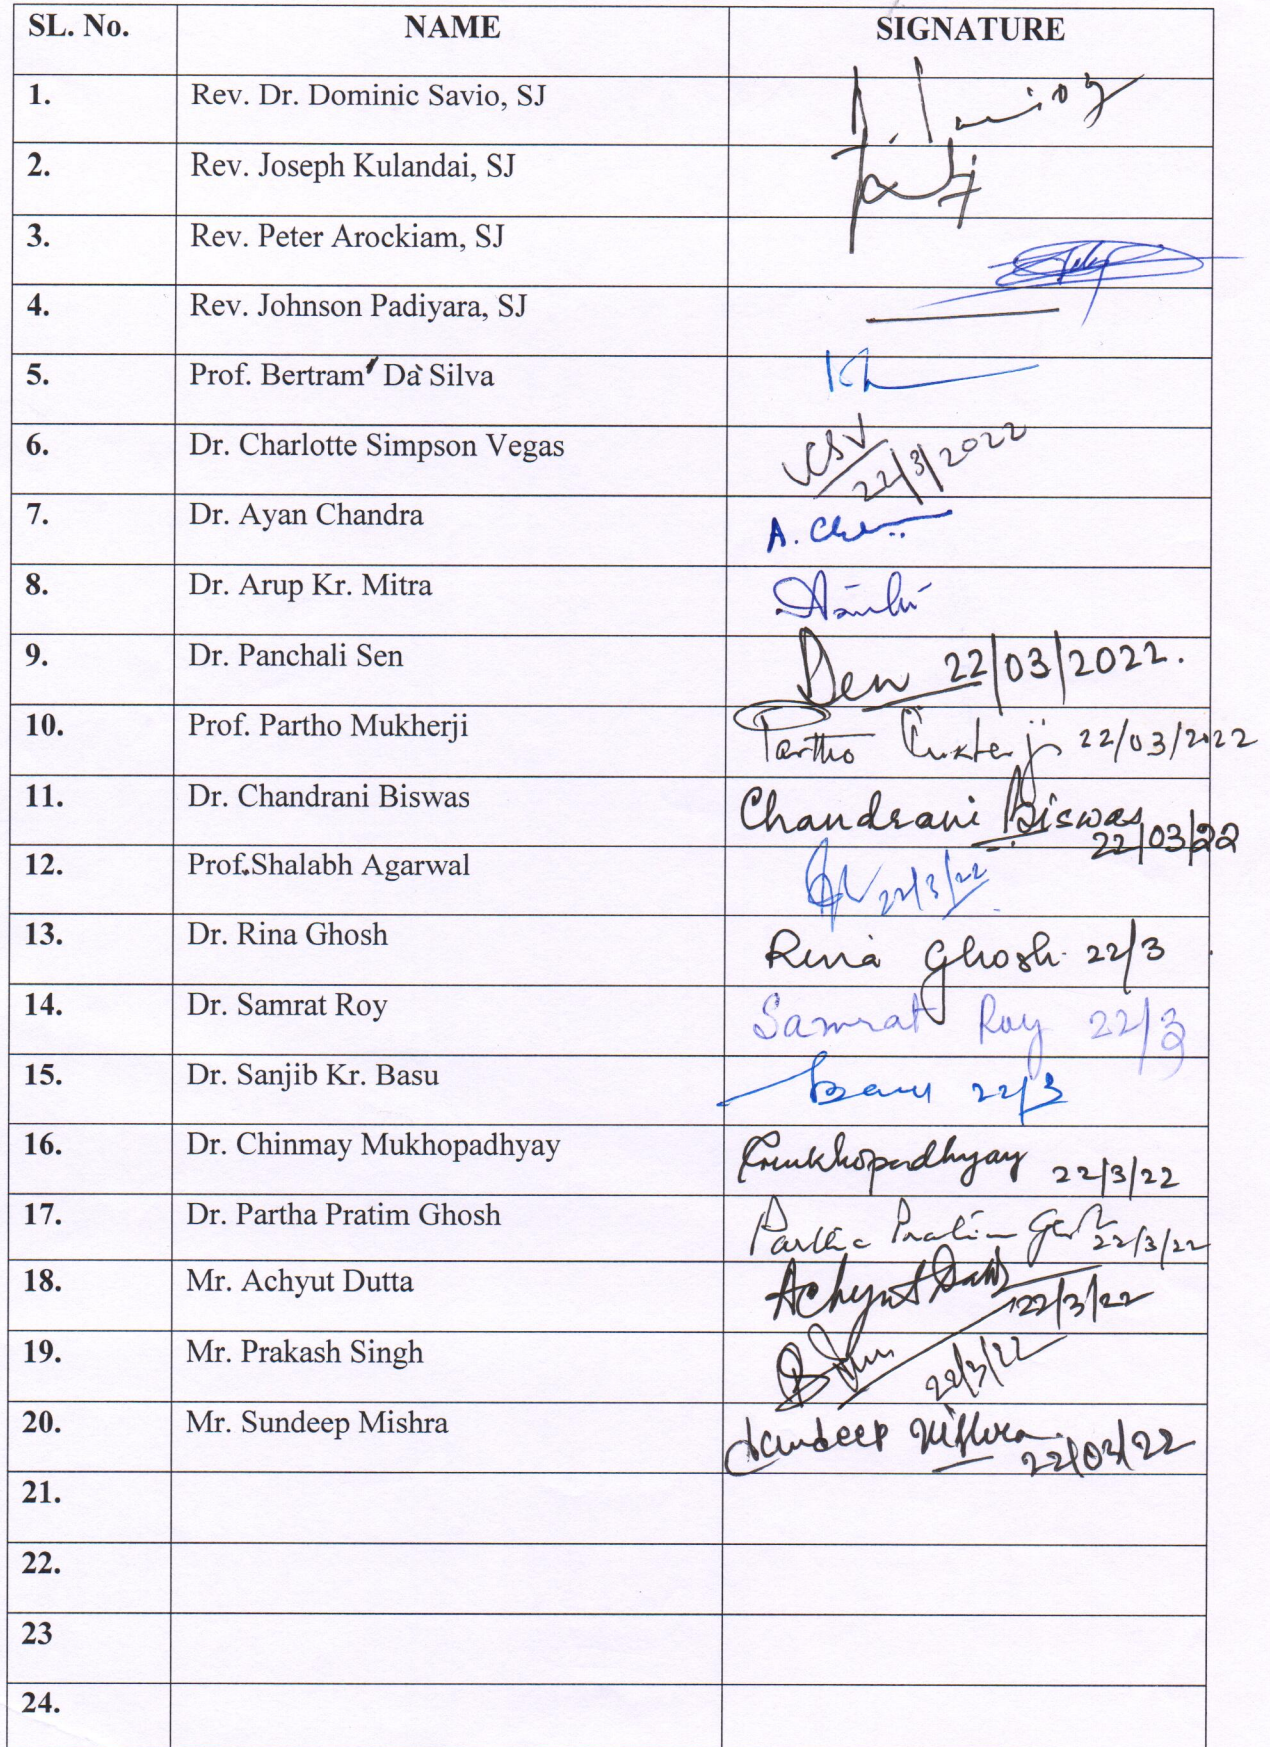 SL. No. NAME SIGNATURE
1. Rev. Dr. Dominic Savio, SJ
2. Rev. Joseph Kulandai, SJ
3. Rev. Peter Arockiam, SJ
4. Rev. Johnson Padiyara, SJ
5. Prof. Bertram Da Silva
6. Dr. Charlotte Simpson Vegas CSV
22/3/2022
7. Dr. Ayan Chandra A.
8. Dr. Arup Kr. Mitra
9. Dr. Panchali Sen Sen 22/03/2022.
10. Prof. Partho Mukherji Partho 22/03/2022
11. Dr. Chandrani Biswas Chandrani Biswas
22/03/22
12. Prof.Shalabh Agarwal 22/3/22
13. Dr. Rina Ghosh Rina Ghosh 22/3
14. Dr. Samrat Roy Samrat Roy 22/3
15. Dr. Sanjib Kr. Basu Basu 22/3
16. Dr. Chinmay Mukhopadhyay CMukhopadhyay 22/3/22
17. Dr. Partha Pratim Ghosh Partha Pratim Ghosh 22/3/22
18. Mr. Achyut Dutta Achyut Dutta
22/3/22
19. Mr. Prakash Singh
22/3/22
20. Mr. Sundeep Mishra Sundeep Mishra
22/03/22
21.
22.
23
24.